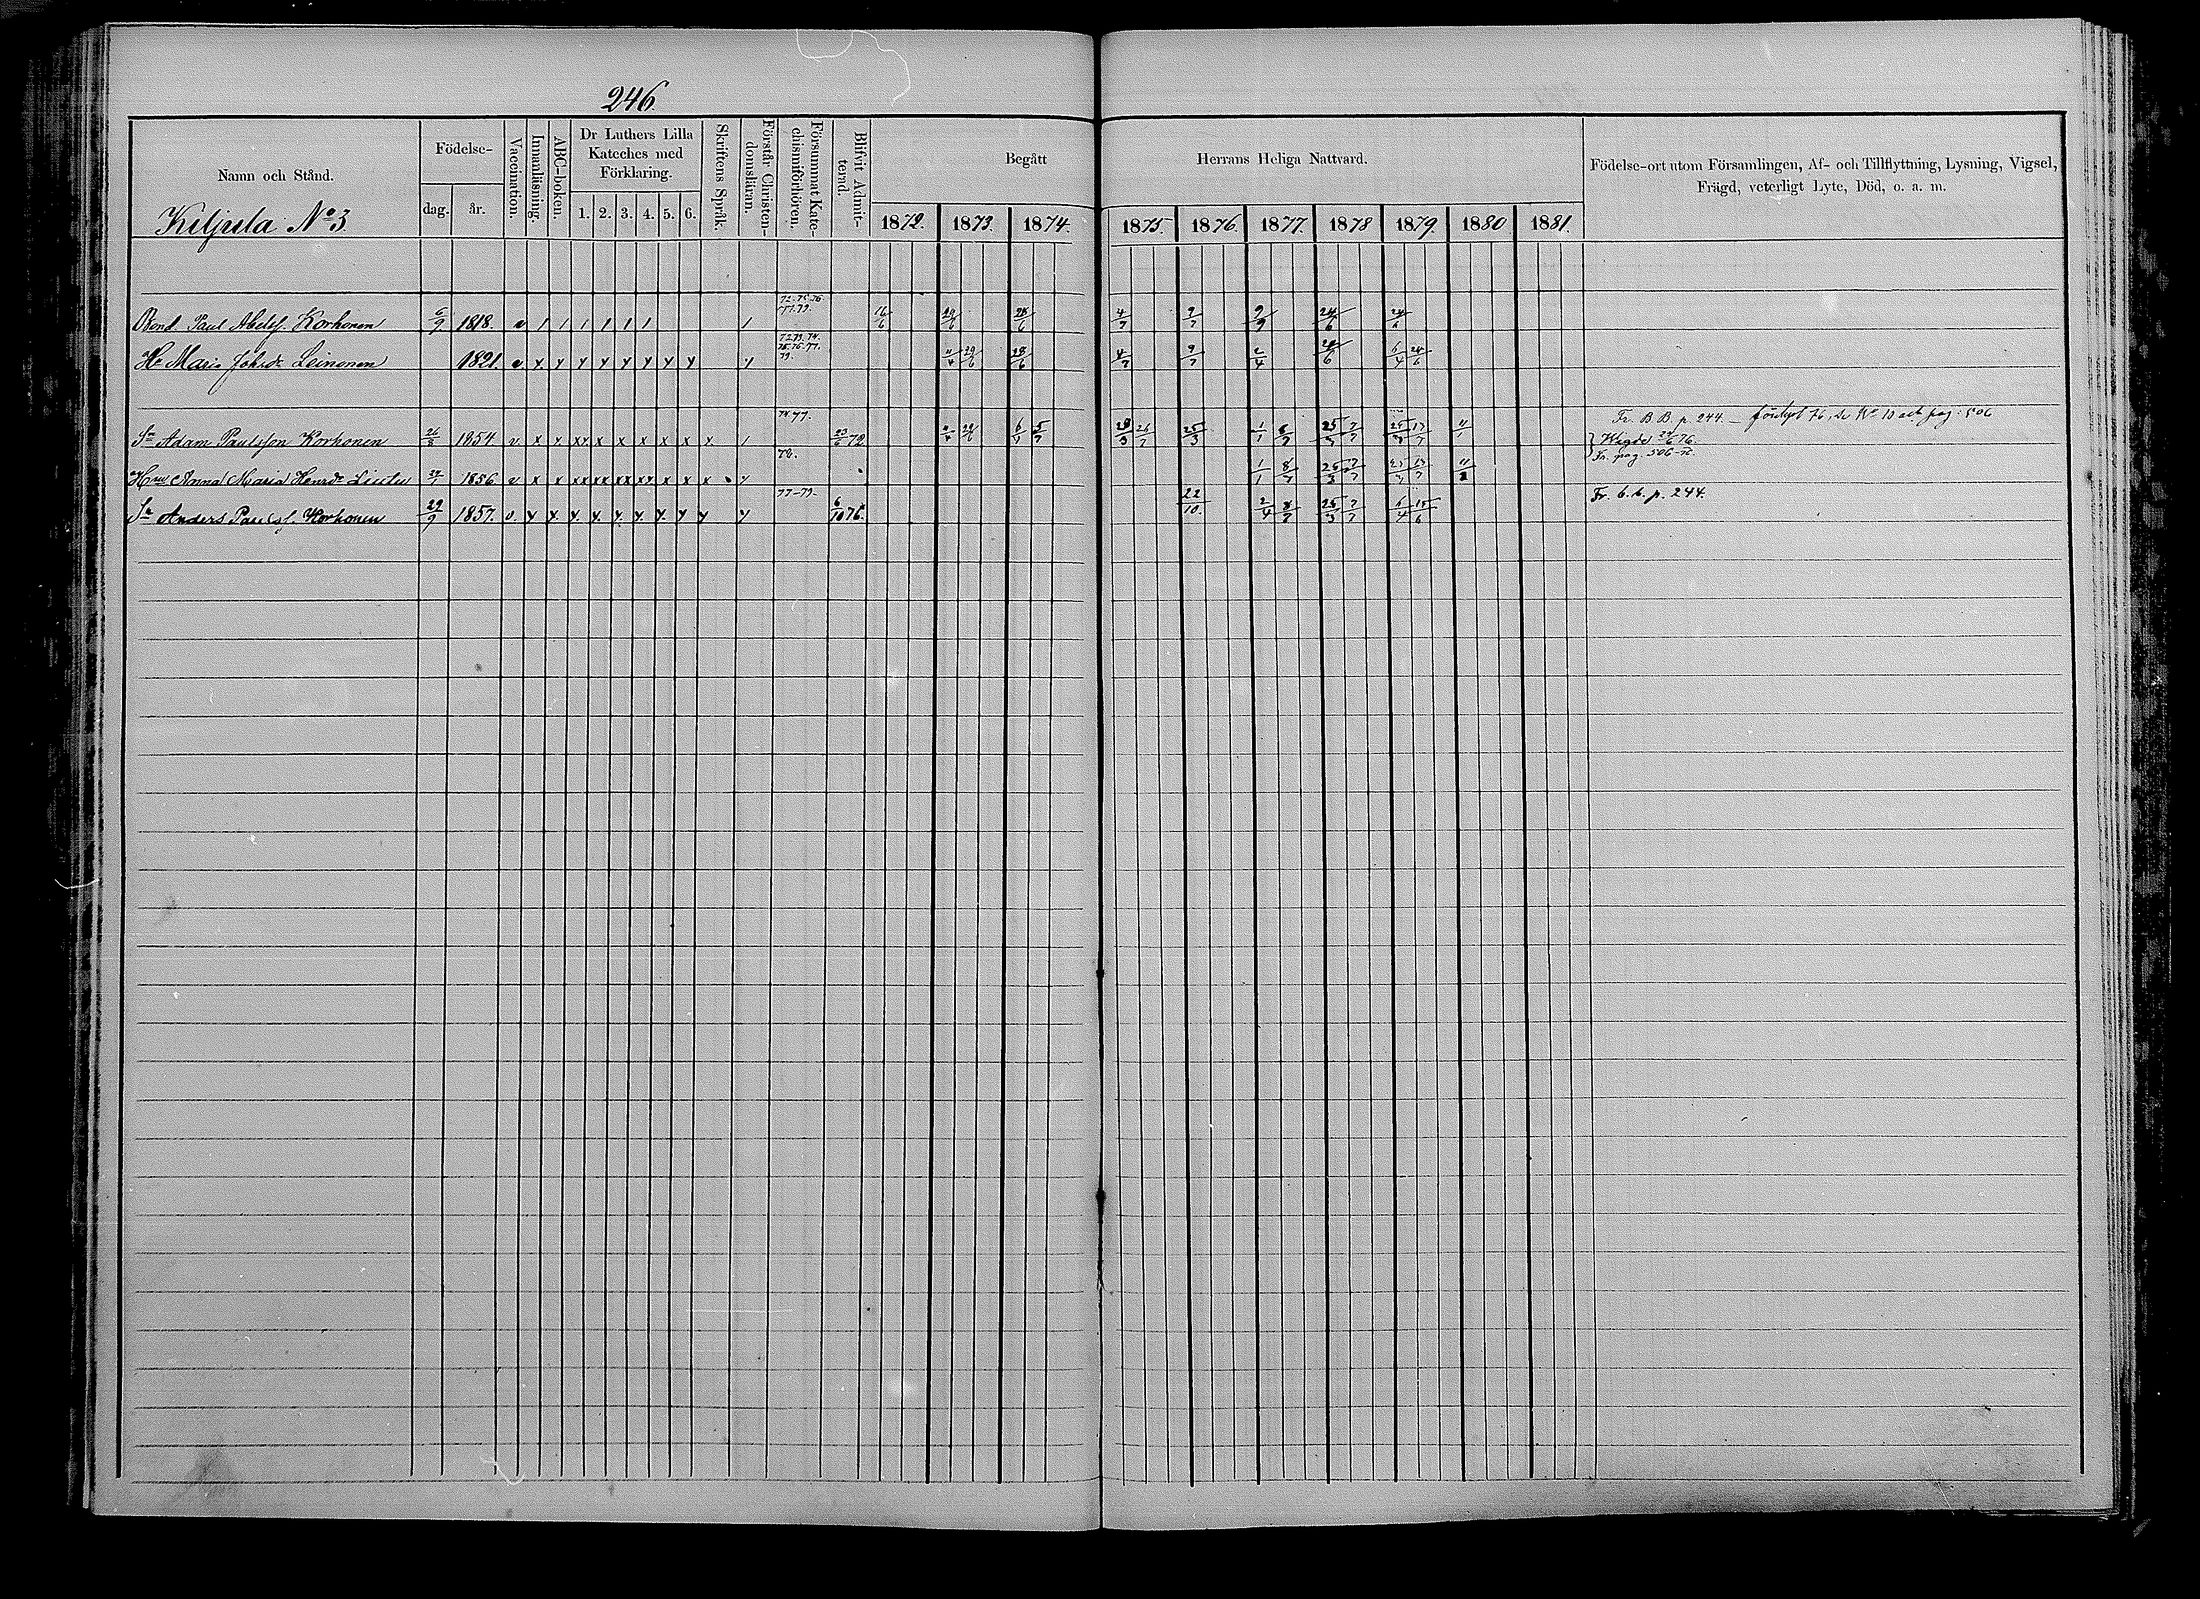 246.
Namn och Stånd.
Födelse-
dag. år.
Vaccination.
Innanläsning.
ABC-boken.
Dr Luthers Lilla
Kateches med
Förklaring.
1. 2. 3. 4. 5. 6.
Skriftens Språk.
Förstår Christen-
domsläran.
Försummat Kate-
chismiförhören.
Blifvit Admit-
terad.
Begått Herrans Heliga Nattvard.
1872. 1873. 1874. 1875. 1876. 1877. 1878 1879. 1880 1881.
Födelse-ort utom Församlingen, Af- och Tillflyttning, Lysning, Vigsel,
Frägd, veterligt Lyte, Död, o. a. m.
Kiljula No 3
Bond. Paul Abelsf. Korhonen 6/9 1818. v / / / / / / / 16/6 29/6 28/6 4/7 9/7 9/9 24/6 24/6
Hu Maria Johsdr Leinonen 1821. v y y y y y y y y y 4/7 9/7 2/4 6/4 24/6
74. 77.
Fr. B. B. p. 244.
Sn Adam Paulsson Korhonen 26/8 1854 v x x xx x x x x x x / 23/6 72. 28/3 26/7 25/3 1/1 8/7 25/3 7/7 25/3 13/7 11/1
78.
Vigde 76.
Fr. pag. 506
Hu Anna Maria Henrdr 1856 v x x xx xx xx xx x x x y 1/1 8/7 25/3 7/7 25/3 13/7
77-79.
Fr. b. b. p. 244.
Sn Anders Paulsf. Korhonen 29/9 1857. v. y y. y. y. y. y. y. y y y 6/10 76. 22/10. 2/4 8/7 25/3 7/7 6/4 15/6